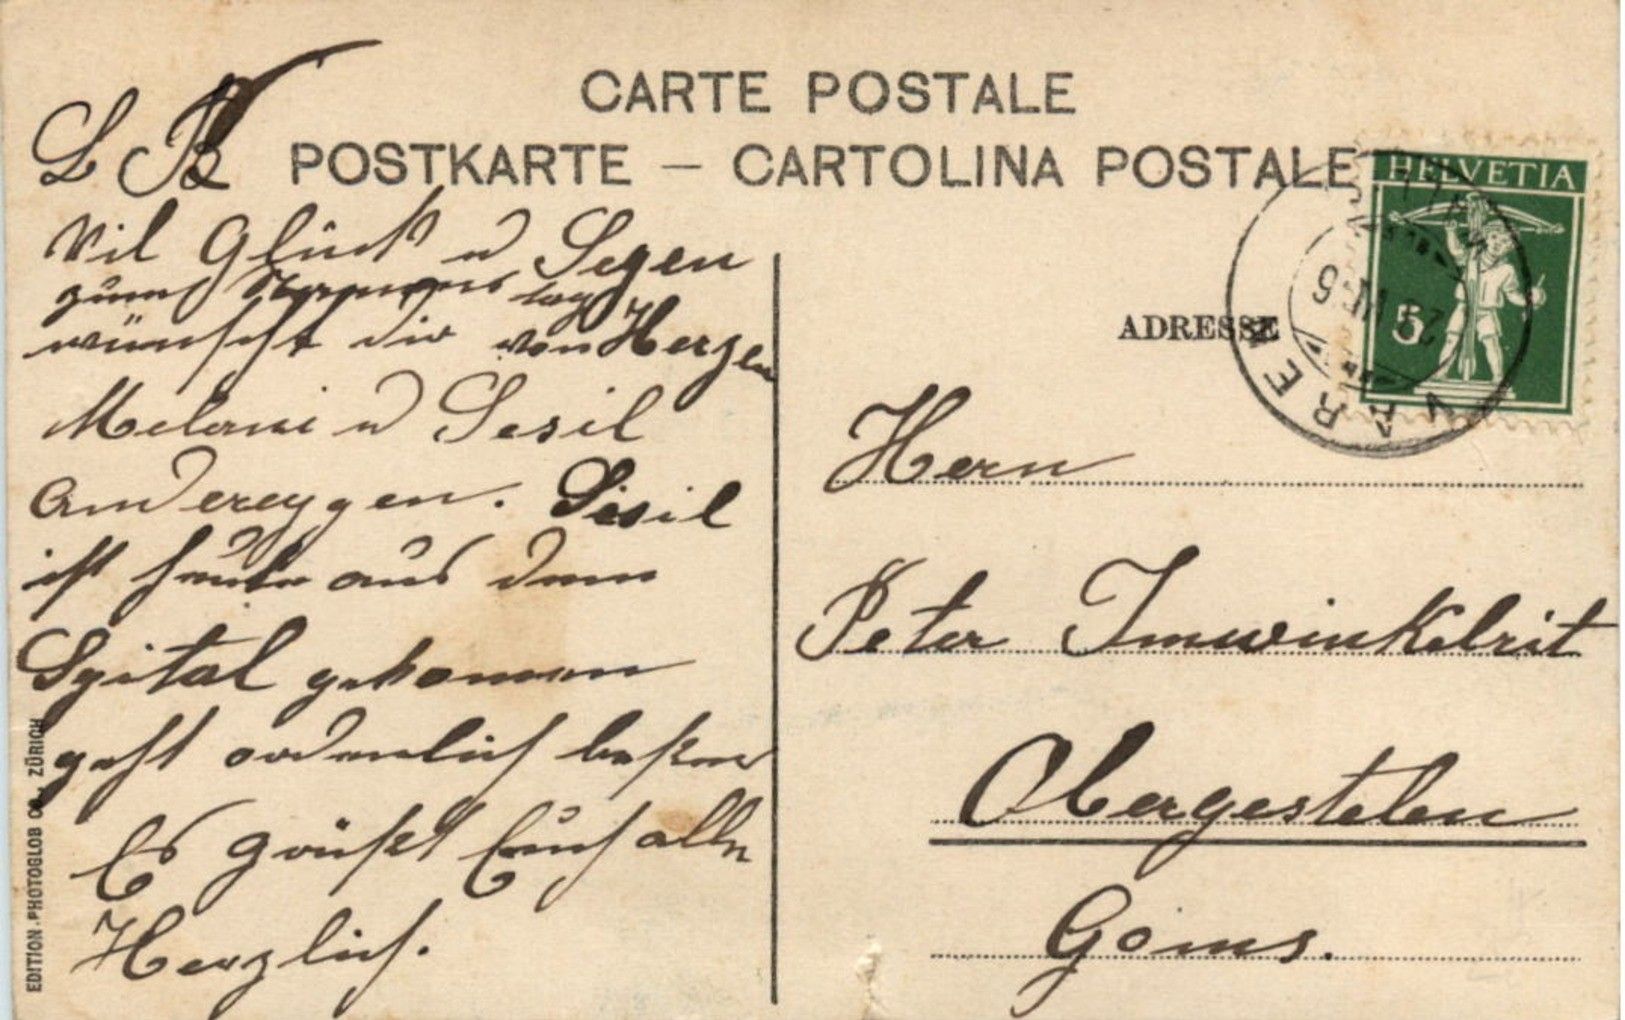 CARTE POSTALE
POSTKARTE — CARTOLINA POSTALE
L B
Vil Glück u Segen
zum Namens tag
wünscht dir von Herzen
Melani u Sesil
Andereggen. Sesil
ist heute aus dem
Spital gekommen
geht ordenlich besser
Es grüßt Euch alle
Herzlich.
EDITION PHOTOGLOB CO., ZÜRICH
HELVETIA
5
VAREN
ADRESSE
Hern
Peter Imwinkelrit
Obergestelen
Goms.